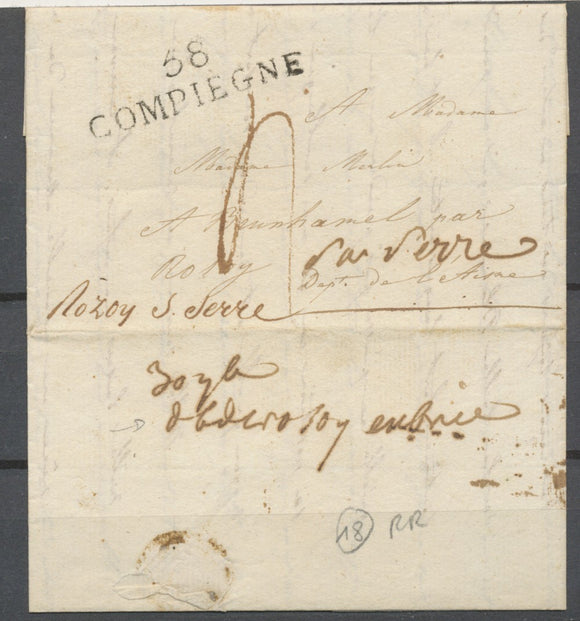 58
COMPIEGNE
A Madame
Madame Merlin
A Brunhamel par
Rozoy Sur Serre
Dept. de l'Aisne
Rozoy S. Serre
debderosoy enbrie
18 RR